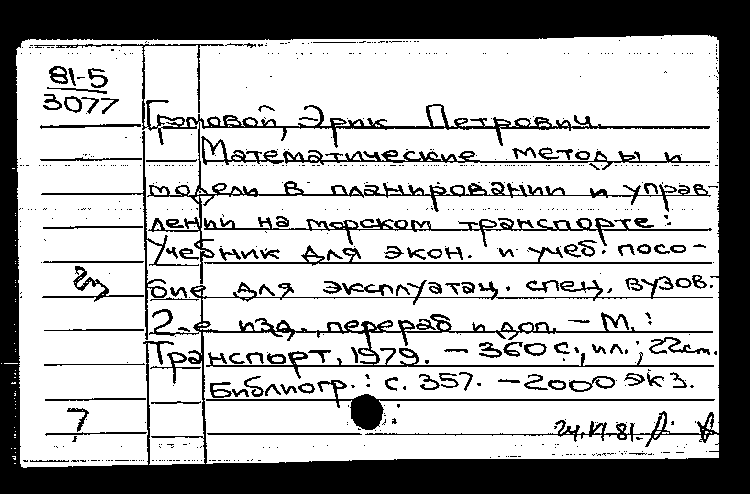 81-5
3077
Громовой, Эрик Петрович.
Математические методы и
модели в планировании и управ-
лении на морском транспорте:
Учебник для экон. и учеб. посо-
бие для эксплуатац. спец. вузов.-
2-е изд., перераб и доп. - М.:
Транспорт, 1979. - 360 с., ил.; 22 см.
Библиогр.: с. 357. - 2000 экз.
7